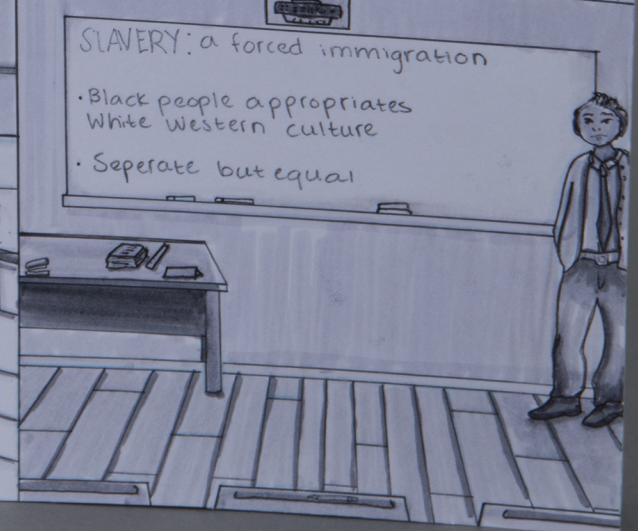 SLAVERY: a forced immigration
· Black people appropriates
White Western culture
· Seperate but equal